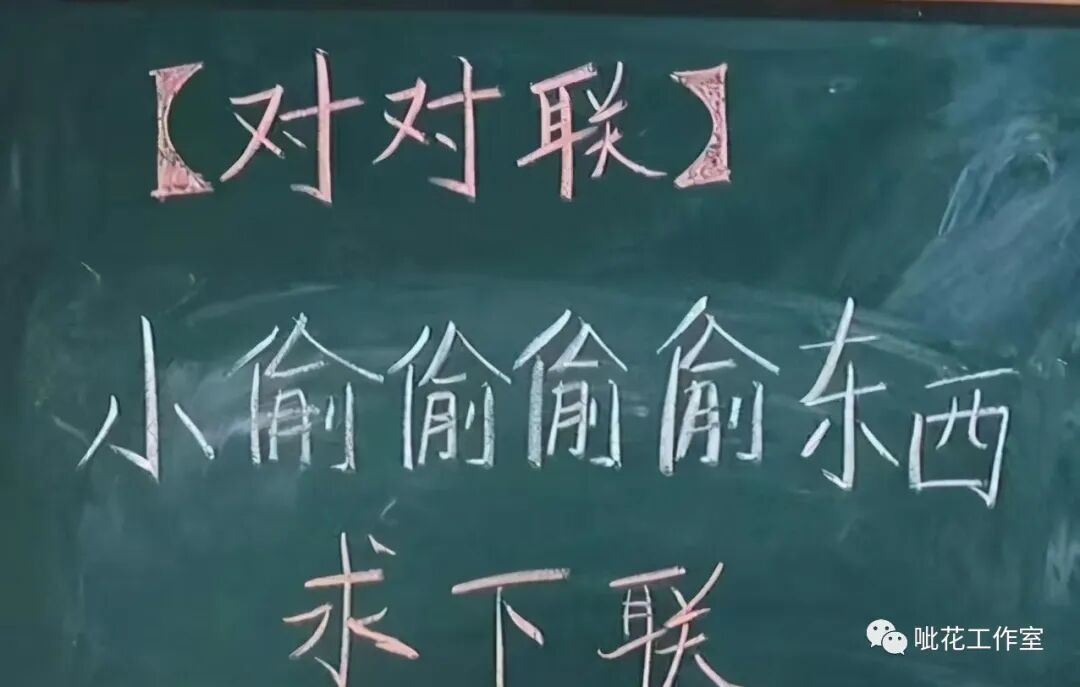 【对对联】
小偷偷偷偷东西
求下联
呲花工作室